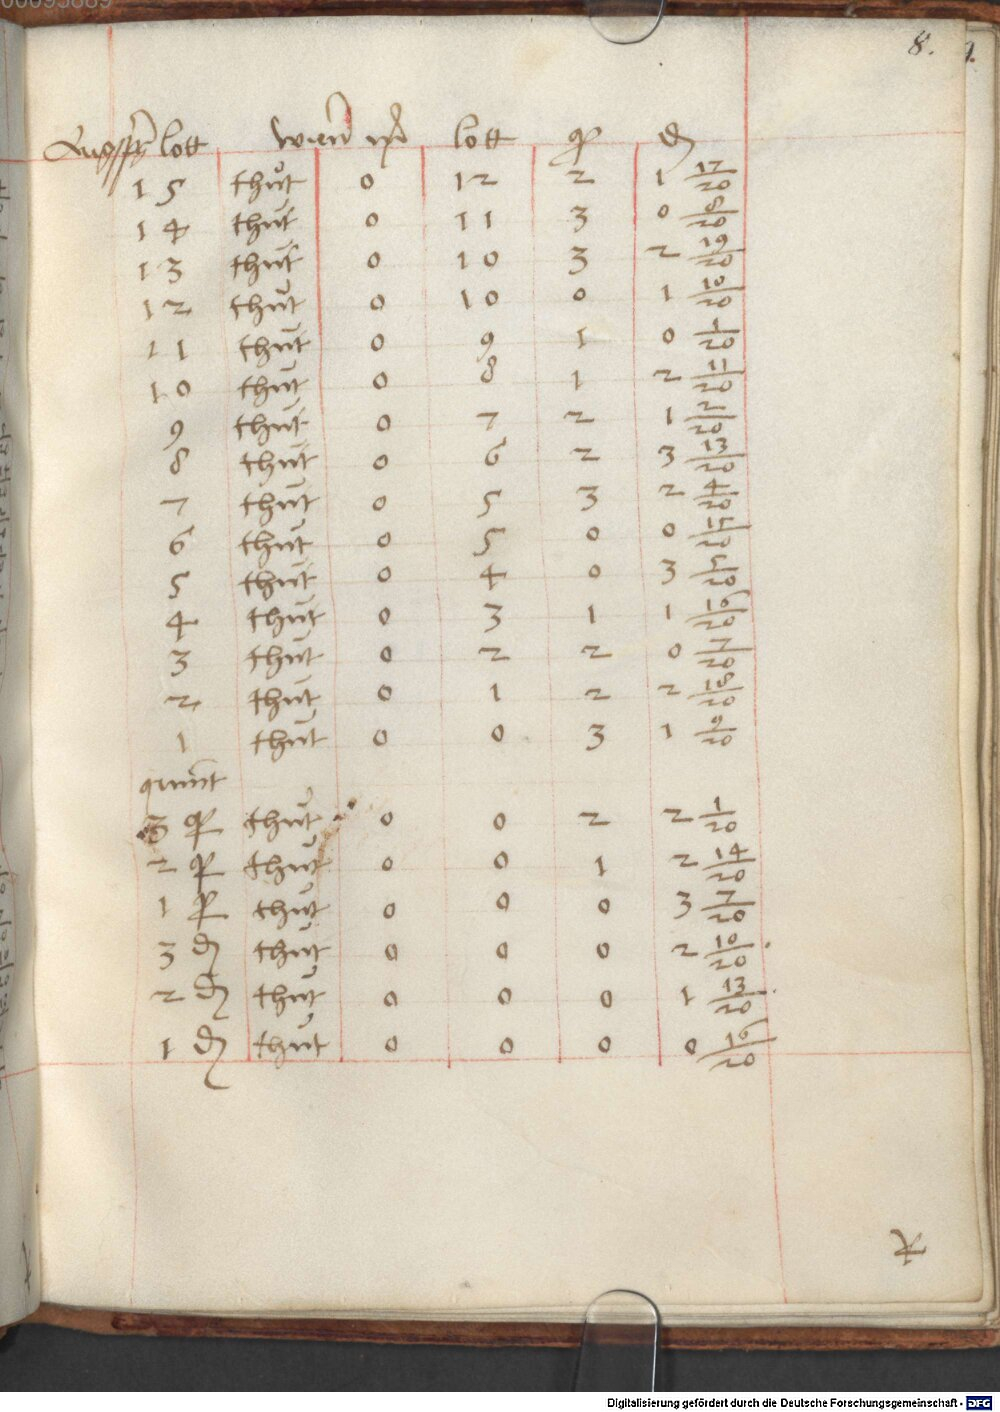 8. 9.
Augsp͂g lott wien̄ m̄r lott q d
15 thůt 0 12 2 1 17/20
14 thůt 0 11 3 0 8/20
13 thůt 0 10 3 2 19/20
12 thůt 0 10 0 1 10/20
11 thůt 0 9 1 0 1/20
10 thůt 0 8 1 2 11/20
9 thůt 0 7 2 1 2/20
8 thůt 0 6 2 3 13/20
7 thůt 0 5 3 2 4/20
6 thůt 0 5 0 0 15/20
5 thůt 0 4 0 3 5/20
4 thůt 0 3 1 1 16/20
3 thůt 0 2 2 0 7/20
2 thůt 0 1 2 2 18/20
1 thůt 0 0 3 1 9/20
quint
3 q thůt 0 0 2 2 1/20
2 q thůt 0 0 1 2 14/20
1 q thůt 0 0 0 3 7/20
3 d thůt 0 0 0 2 10/20
2 d thůt 0 0 0 1 13/20
1 d thůt 0 0 0 0 16/20
Digitalisierung gefördert durch die Deutsche Forschungsgemeinschaft - DFG